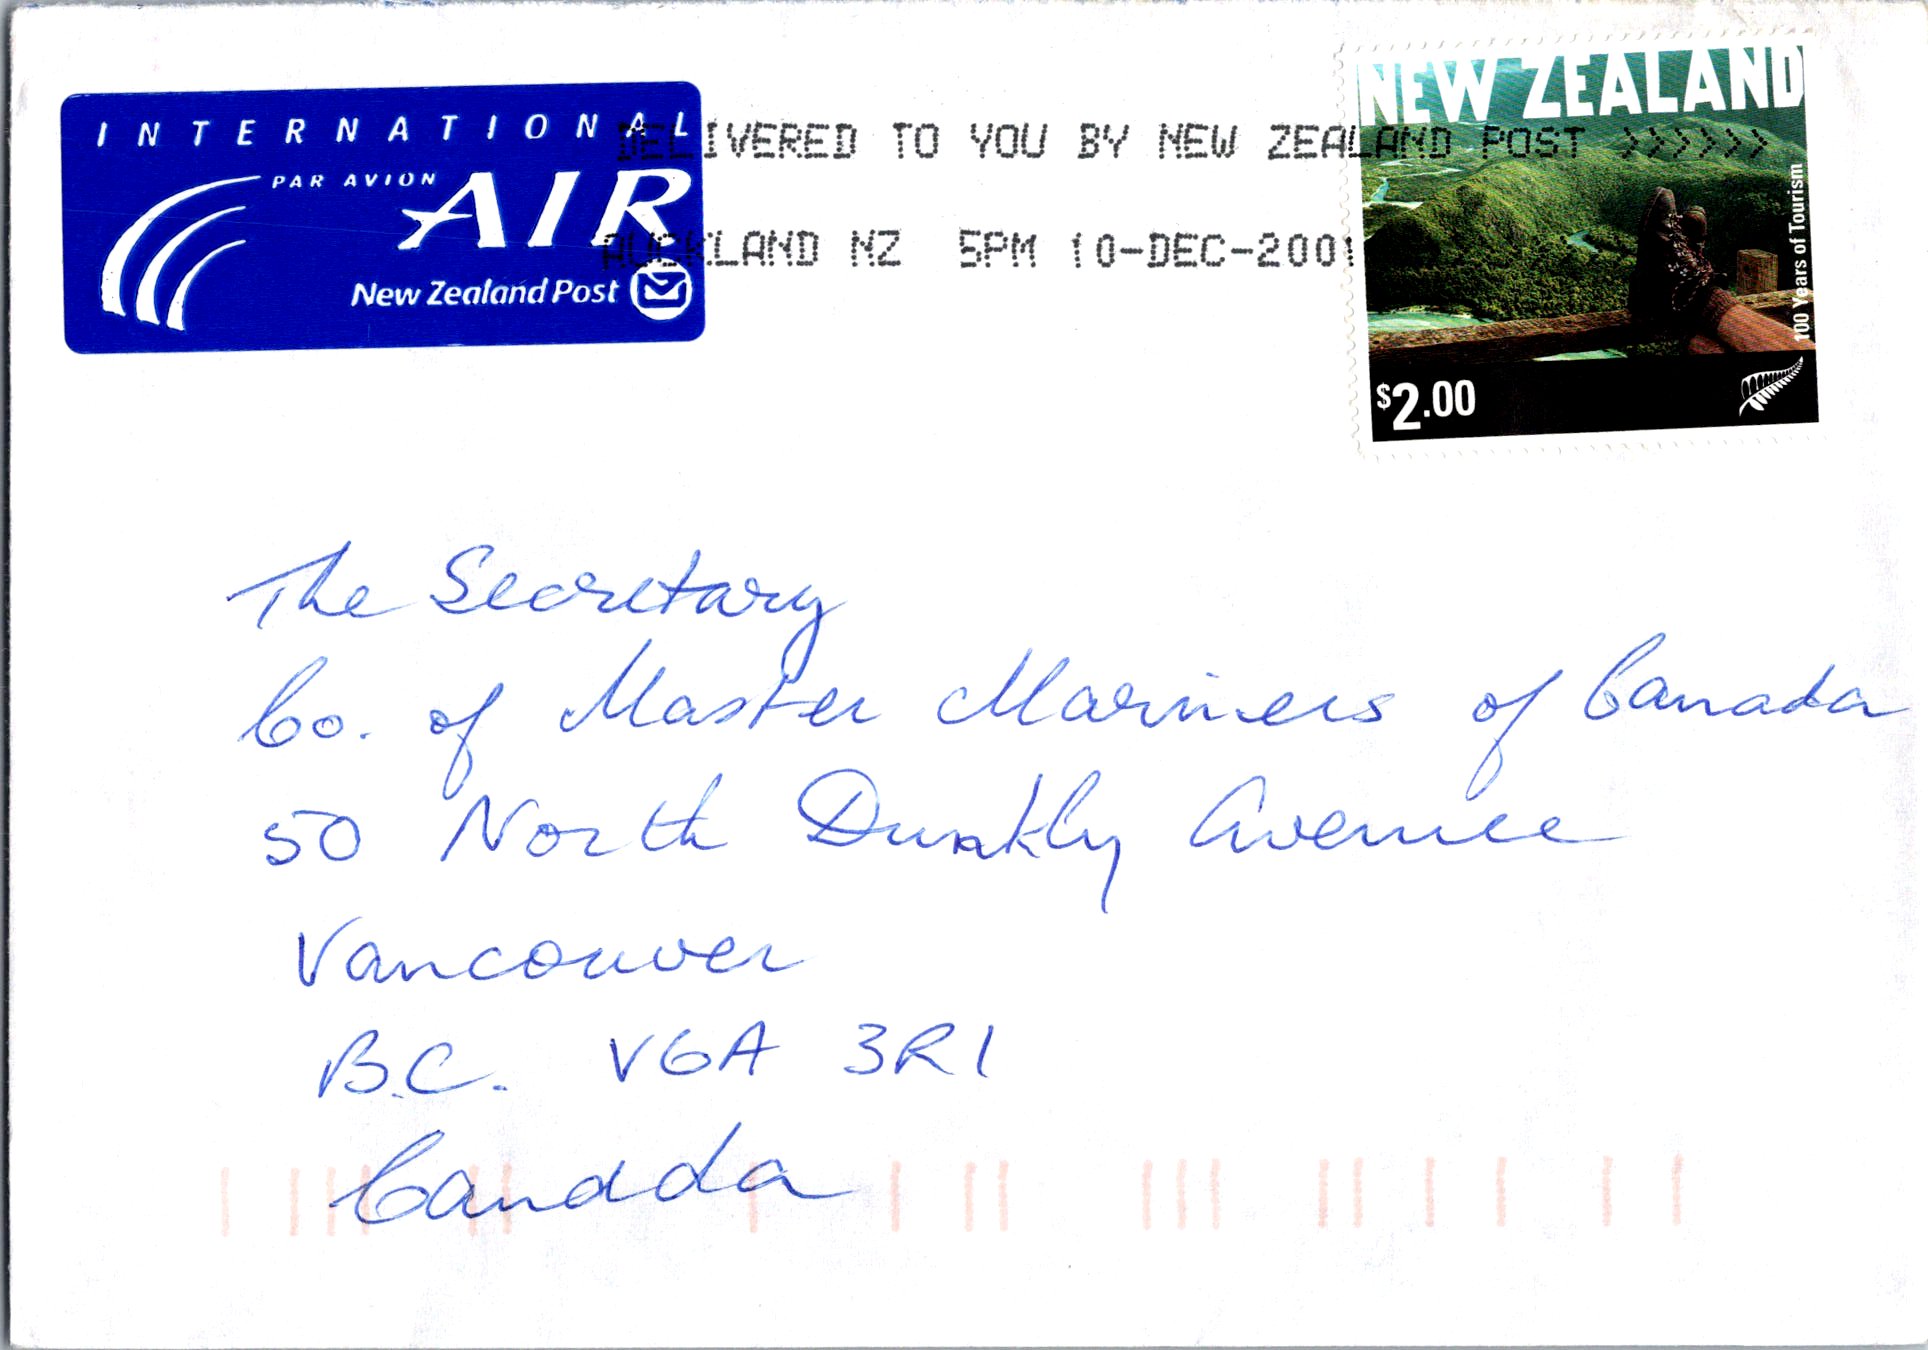 INTERNATIONAL
PAR AVION
AIR
New Zealand Post
DELIVERED TO YOU BY NEW ZEALAND POST >>>>>>
AUCKLAND NZ 5PM 10-DEC-2001
NEW ZEALAND
100 Years of Tourism
$2.00
The Secretary
Co. of Master Mariners of Canada
50 North Dunkly Avenue
Vancouver
B.C. V6A 3R1
Canada